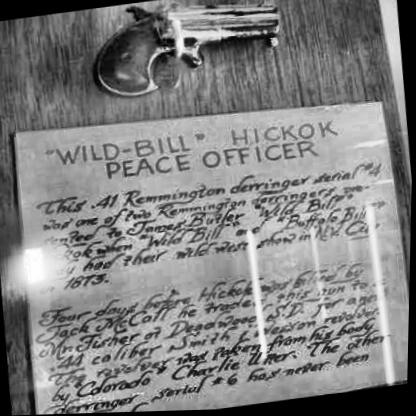 "WILD-BILL" HICKOK
PEACE OFFICER
This .41 Remmington derringer serial #4
was one of two Remmington derringers pre-
sented to James Butler "Wild Bill"
kok when "Wild Bill" and "Buffalo Bill"
y had their wild west show in N.Y. City
in 1873.
Four days before Hickok was killed by
Jack McCall he traded this gun to
Mr. Fisher of Deadwood, S.D. for a
.44 caliber Smith & Wesson revolver.
The revolver was taken from his body
by Colorado Charlie Utter. The other
derringer serial #6 has never been